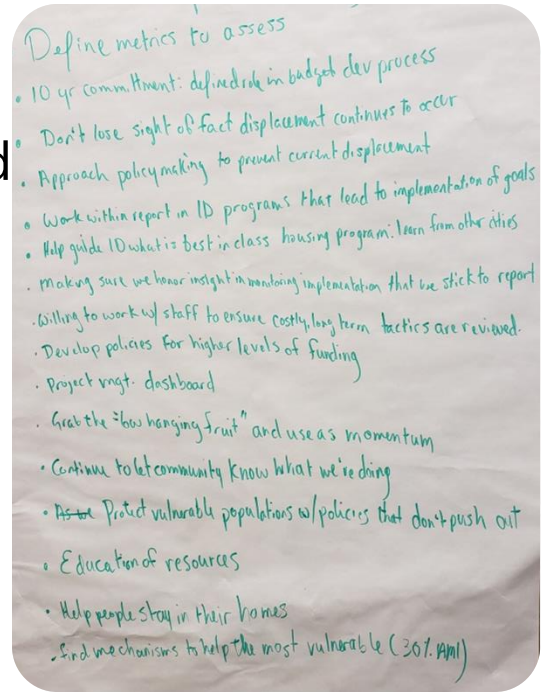 Define metrics to assess
• 10 yr commitment: defined role in budget dev process
• Don't lose sight of fact displacement continues to occur
• Approach policymaking to prevent current displacement
• Work within report in ID programs that lead to implementation of goals
• Help guide ID what is best in class housing program: learn from other cities
• Making sure we honor insight in monitoring implementation that we stick to report
• Willing to work w/ staff to ensure costly, long term tactics are reviewed.
• Develop policies for higher levels of funding
• Project mgt. dashboard
• Grab the "low hanging fruit" and use as momentum
• Continue to let community know what we're doing
• As we Protect vulnerable populations w/ policies that don't push out
• Education of resources
• Help people stay in their homes
• find mechanisms to help the most vulnerable (30% AMI)
d